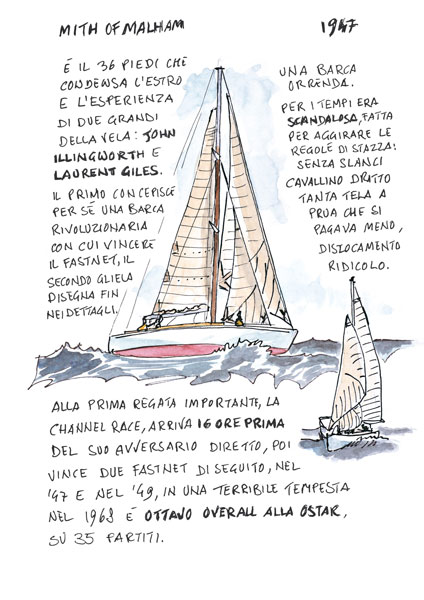 MITH OF MALHAM
1947
É IL 36 PIEDI CHE
CONDENSA L'ESTRO
E L'ESPERIENZA
DI DUE GRANDI
DELLA VELA: JOHN
ILLINGWORTH E
LAURENT GILES.
IL PRIMO CONCEPISCE
PER SÉ UNA BARCA
RIVOLUZIONARIA
CON CUI VINCERE
IL FASTNET, IL
SECONDO GLIELA
DISEGNA FIN
NEI DETTAGLI.
UNA BARCA
ORRENDA.
PER I TEMPI ERA
SCANDALOSA, FATTA
PER AGGIRARE LE
REGOLE DI STAZZA:
SENZA SLANCI
CAVALLINO DRITTO
TANTA TELA A
PRUA CHE SI
PAGAVA MENO,
DISLOCAMENTO
RIDICOLO.
ALLA PRIMA REGATA IMPORTANTE, LA
CHANNEL RACE, ARRIVA 16 ORE PRIMA
DEL SUO AVVERSARIO DIRETTO, POI
VINCE DUE FASTNET DI SEGUITO, NEL
'47 E NEL '49, IN UNA TERRIBILE TEMPESTA
NEL 1968 É OTTAVO OVERALL ALLA OSTAR,
SU 35 PARTITI.